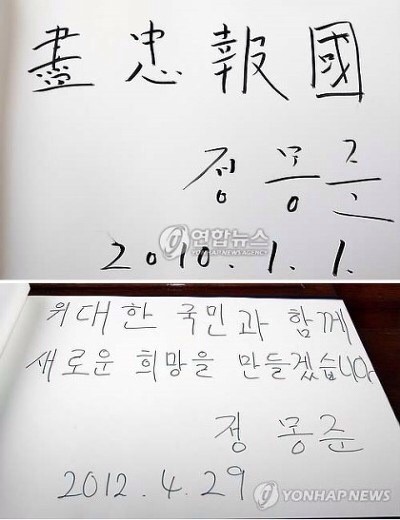 盡忠報國
정몽준
연합뉴스
YONHAP NEWS AGENCY
2010.1.1.
위대한 국민과 함께
새로운 희망을 만들겠습니다
정몽준
2012.4.29
YONHAP NEWS